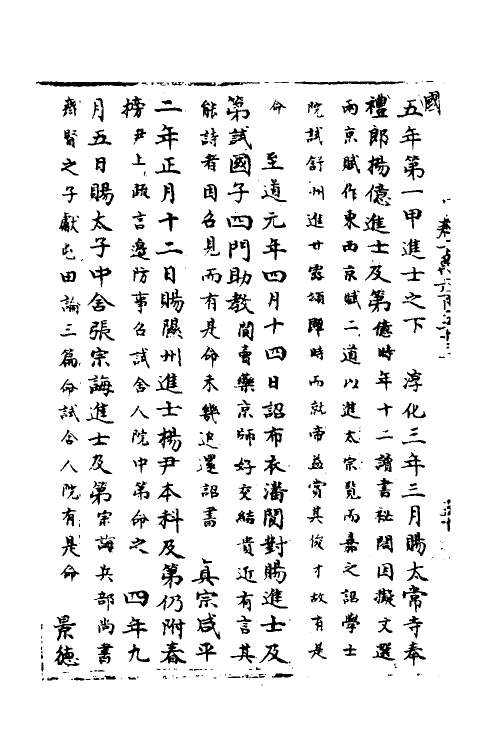 國
五年第一甲進士之下　淳化三年三月賜太常寺奉
禮郎揚億進士及第億時年十二讀書祕閣因擬文選
兩京賦作東西京賦二道以進太宗覽而嘉之詔學士
院試舒州進甘露頌踰時而就帝益賞其俊才故有是
命　至道元年四月十四日詔布衣潘閬對賜進士及
第試國子四門助教閬賣藥京師好交結貴近有言其
能詩者因召見而有是命未幾追還詔書　真宗咸平
二年正月十二日賜隰州進士楊尹本科及第仍附春
榜尹上疏言邊防事召試舍人院中第命之　四年九
月五日賜太子中舍張宗誨進士及第宗誨兵部尚書
齊賢之子獻屯田論三篇命試舍人院有是命　景德